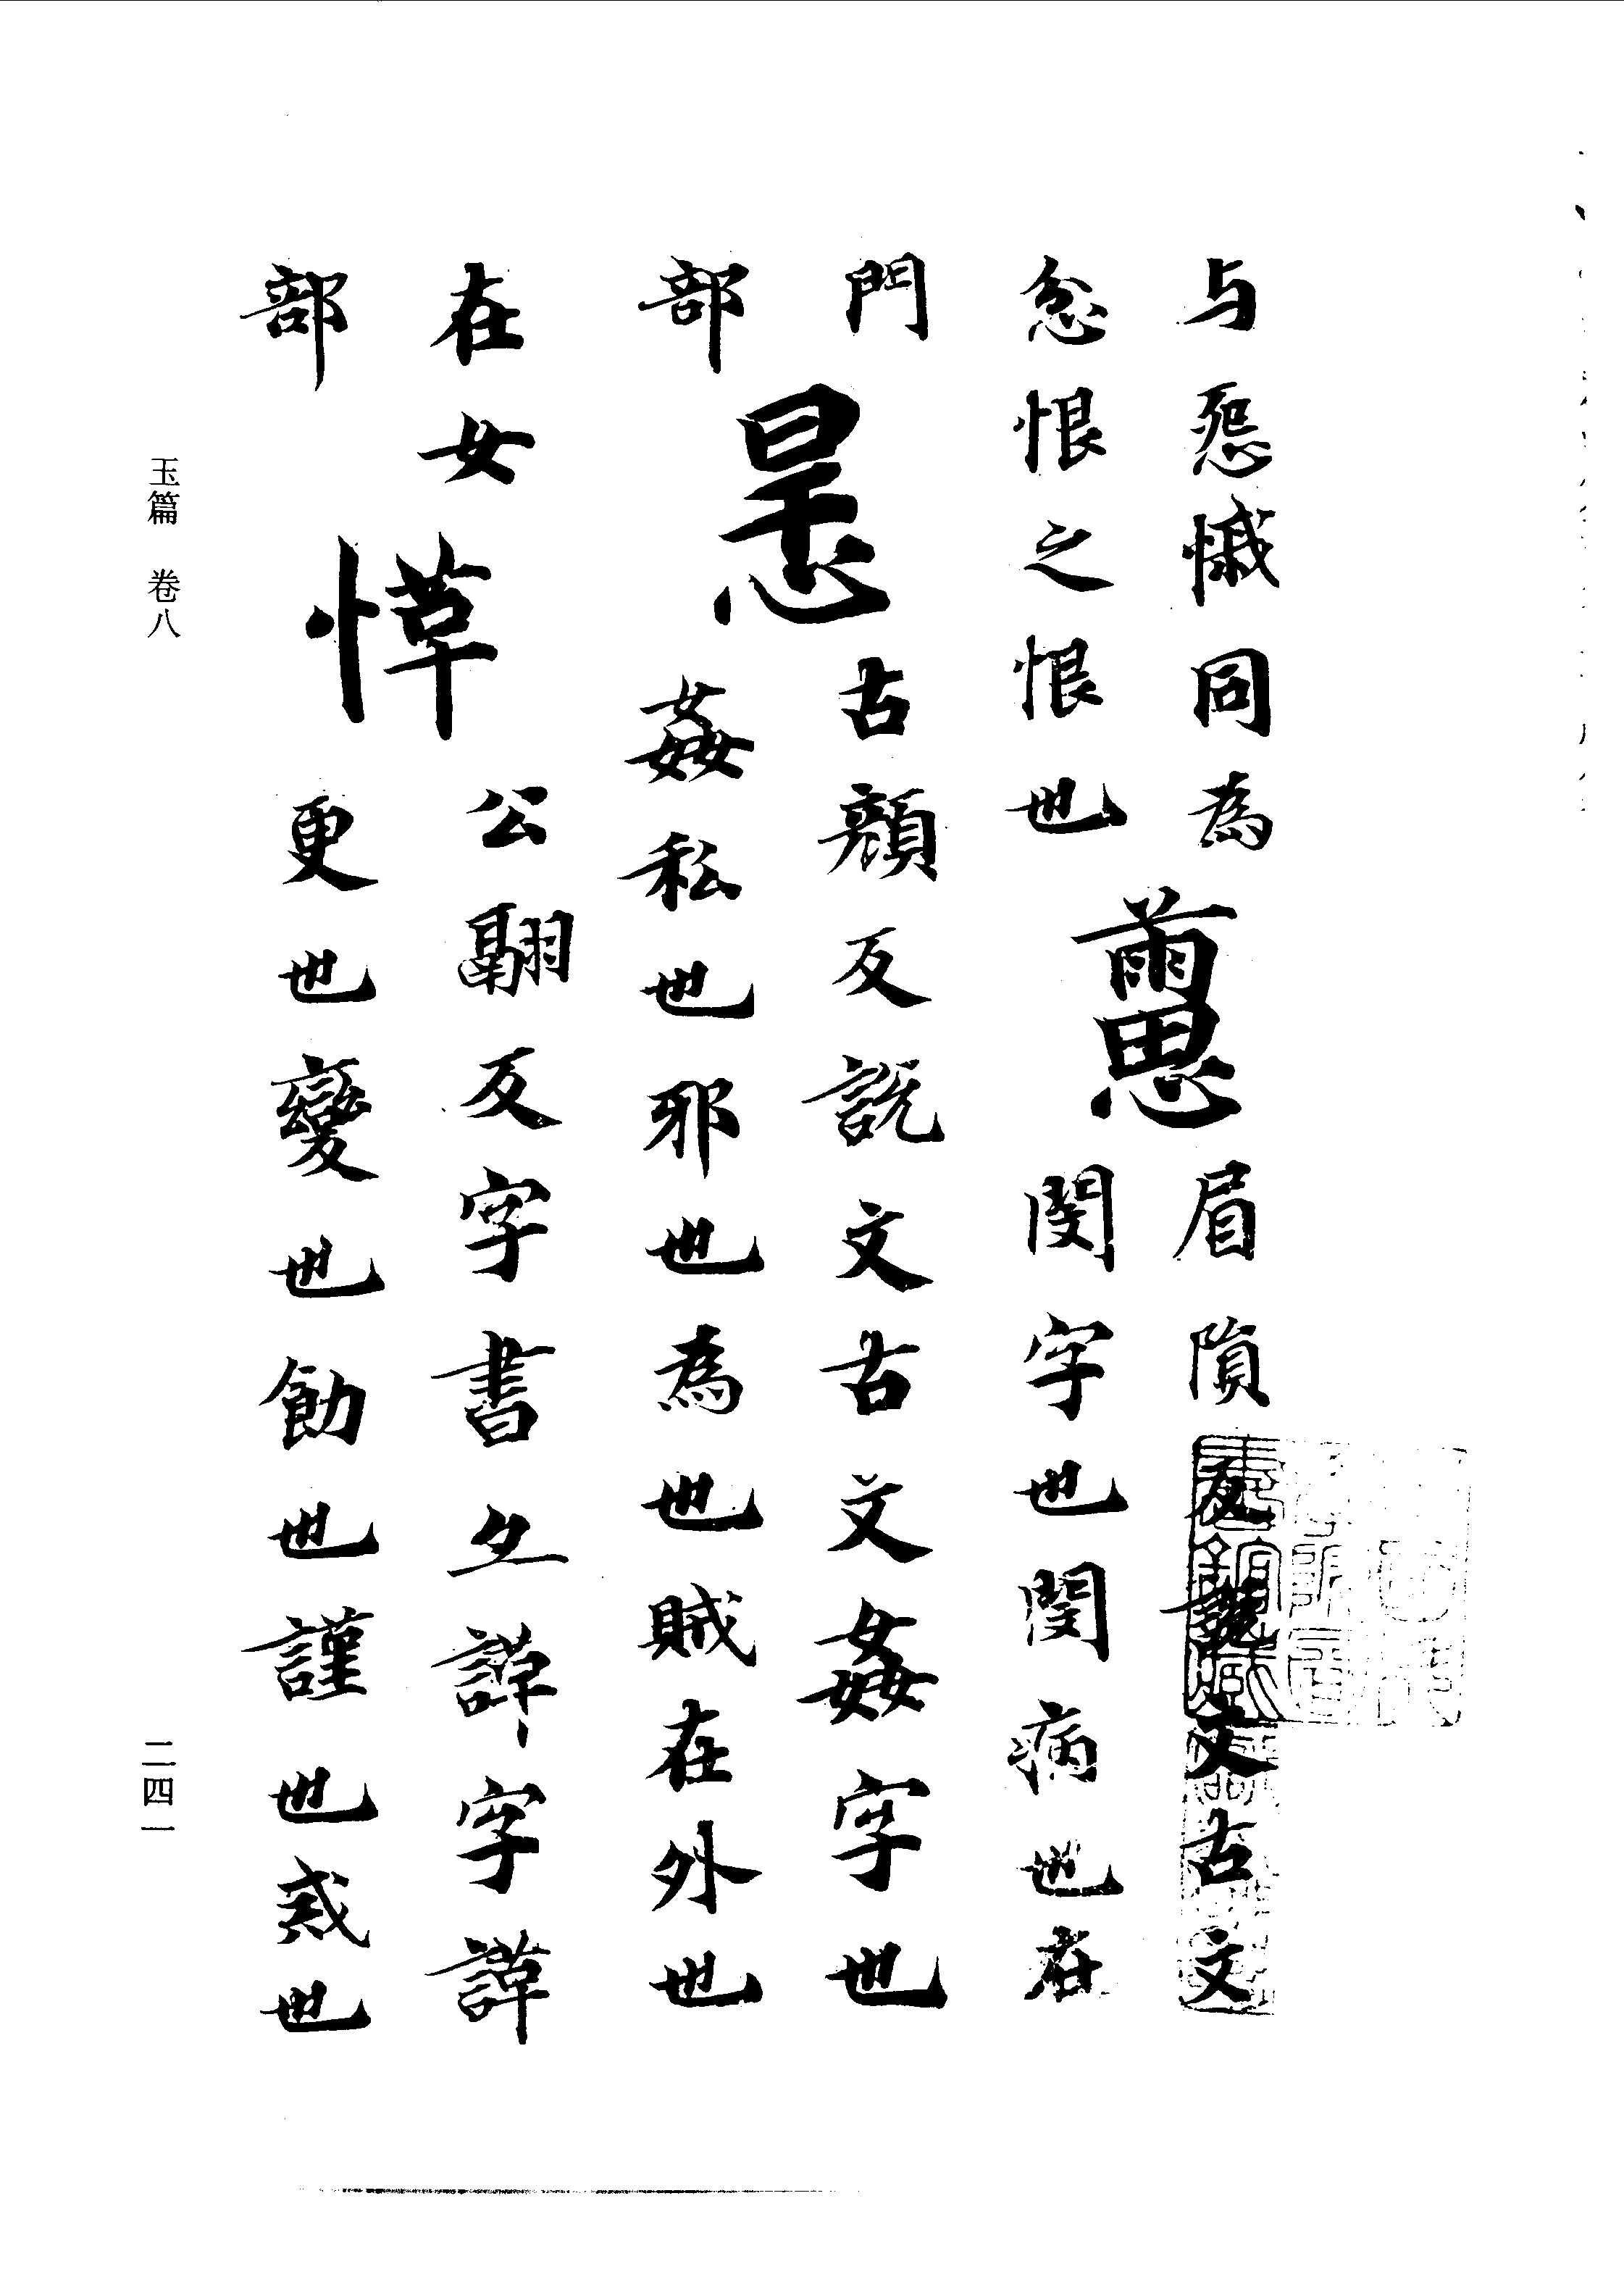 与怨憾同為
忿恨之恨也
眉隕反説文古文
閔字也閔病也在
門
部
古顔反説文古文姦字也
姦私也邪也為也賊在外也
在女
部
公翮反字書亦諽字諽
更也變也飭也謹也惑也
玉篇 卷八
二四一